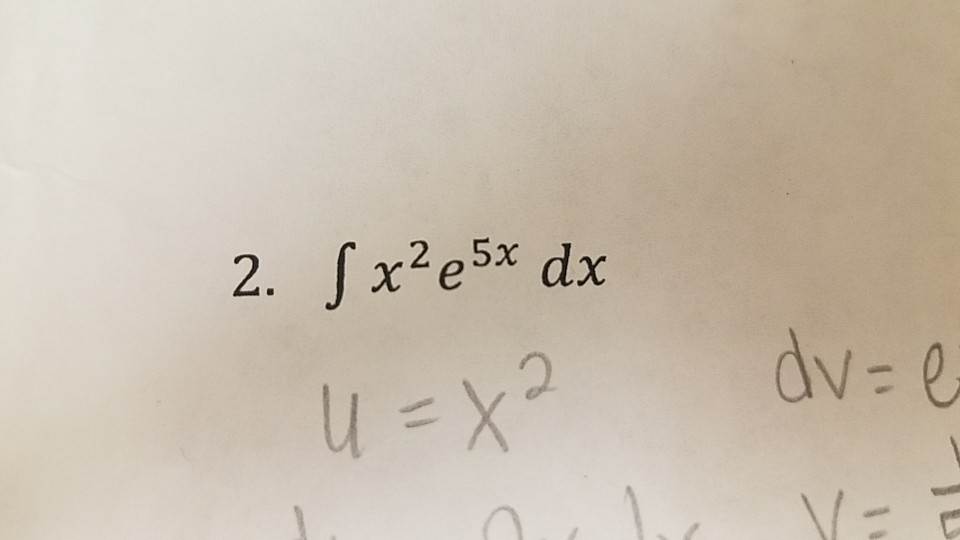 2. ∫ x²e⁵ˣ dx
u = x² dv = e
v =